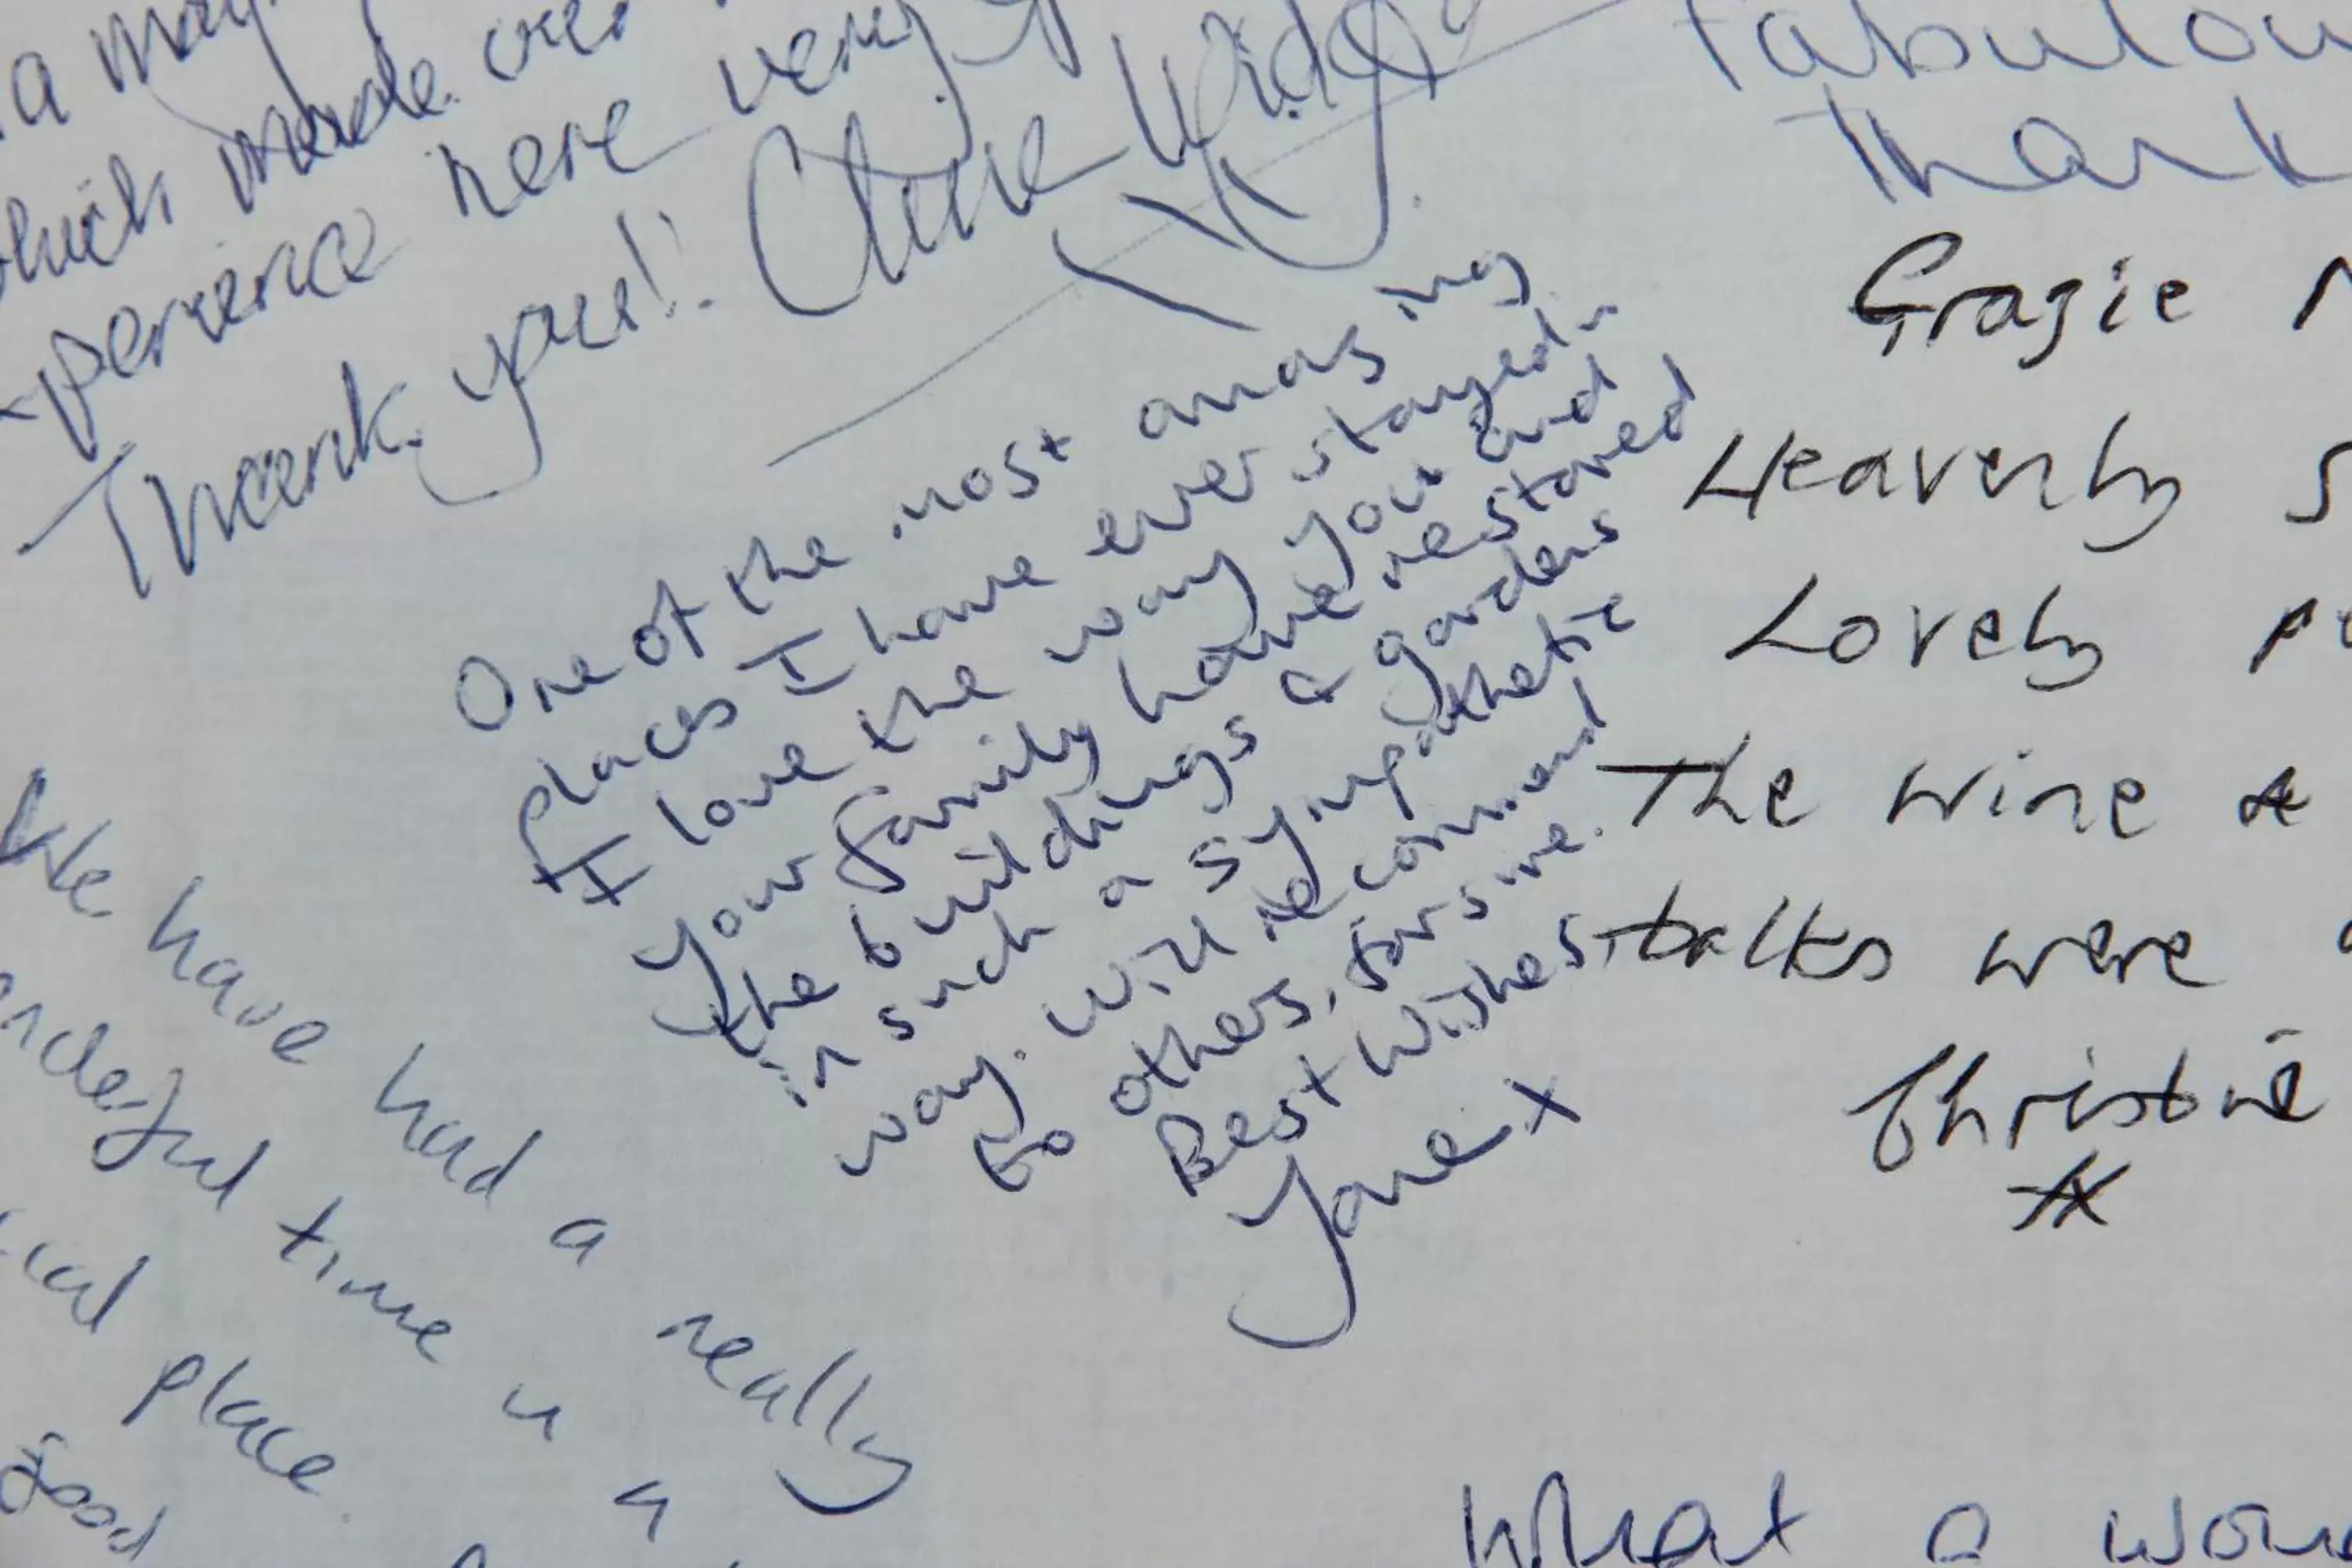 a
which made our
here very
Thank you!! Clare
Fabulou
Thank
One of the most amazing
places I have ever stayed in
I love the way you and
your family have restored
the buildings & gardens
in such a sympathetic
way. Will recommend
to others, for sure.
Best wishes,
Jane x
Grazie
Heavenly
Lovely
The wine &
talks were
Christine
We have had a really
time
place
good
What a won